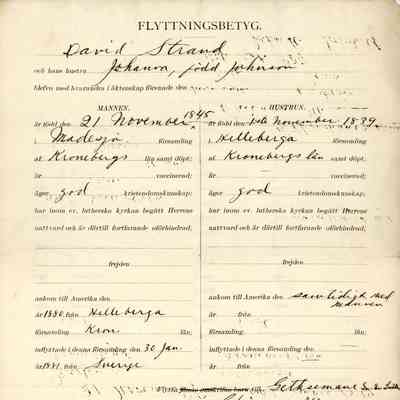 FLYTTNINGSBETYG.
David Strand
och hans hustru Johanna, född Johnson
blefvo med hvarandra i äktenskap förenade den
MANNEN. HUSTRUN.
är född den 21 November 1845 är född den 1ste November 1839
i Madesjö församling i Helleberga församling
af Kronebergs län samt döpt; af Kronebergs län samt döpt;
är vaccinerad; är vaccinerad;
äger god kristendomskunskap; äger god kristendomskunskap;
har inom ev. lutherska kyrkan begått Herrens har inom ev. lutherska kyrkan begått Herrens
nattvard och är därtill fortfarande oförhindrad; nattvard och är därtill fortfarande oförhindrad;
frejden frejden
ankom till Amerika den ankom till Amerika den samtidigt med mannen
år 1880 från Helleberga år från
församling Kron. län; församling län;
inflyttade i denna församling den 30 Jan. inflyttade i denna församling den
år 1881 från Sverige år från
Gethsemane